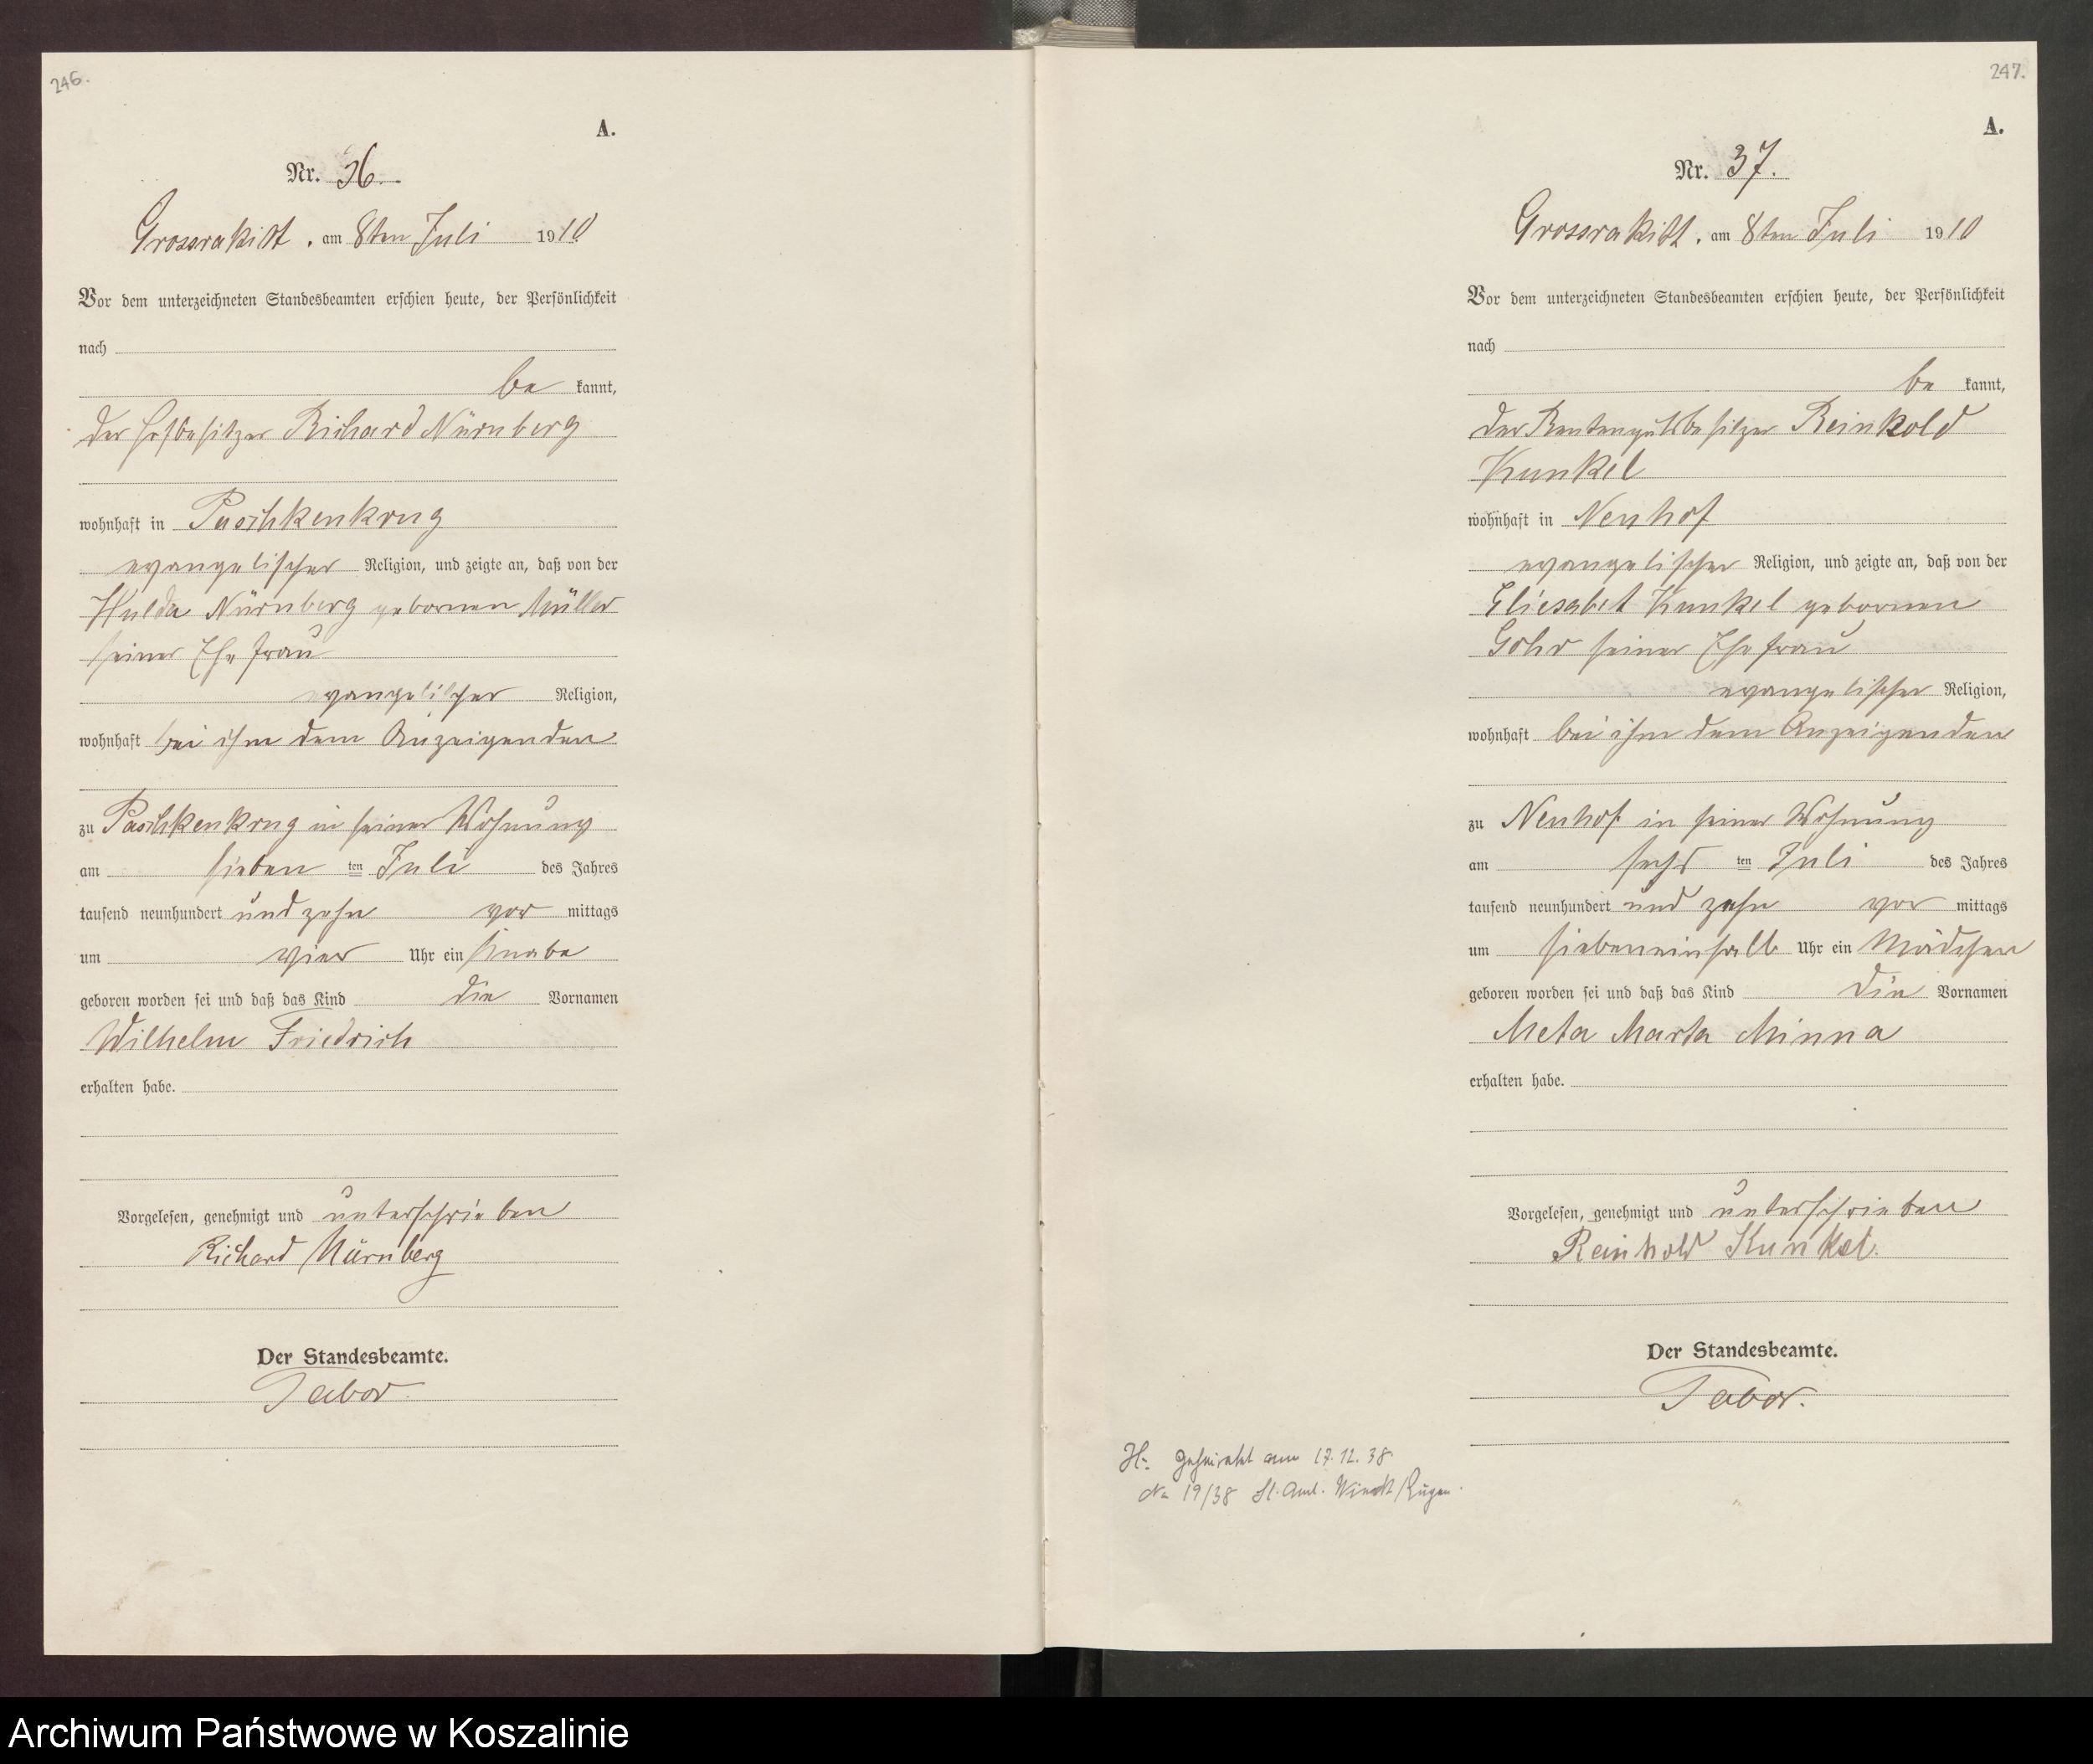 246.
A.
Nr. 36.
Grossrakitt, am 8ten Juli 1910
Vor dem unterzeichneten Standesbeamten erschien heute, der Persönlichkeit
nach
be kannt,
der Hofbesitzer Richard Nürnberg
wohnhaft in Paschkenkrug
evangelischer Religion, und zeigte an, daß von der
Hulda Nürnberg gebornen Müller
seiner Ehefrau
evangelischer Religion,
wohnhaft bei ihm dem Anzeigenden
zu Paschkenkrug in seiner Wohnung
am sieben ten Juli des Jahres
tausend neunhundert und zehn vor mittags
um vier Uhr ein Knabe
geboren worden sei und daß das Kind die Vornamen
Wilhelm Friedrich
erhalten habe.
Vorgelesen, genehmigt und unterschrieben
Richard Nürnberg
Der Standesbeamte.
Tabor.
247.
A.
Nr. 37.
Grossrakitt, am 8ten Juli 1910
Vor dem unterzeichneten Standesbeamten erschien heute, der Persönlichkeit
nach
be kannt,
der Rentengutsbesitzer Reinhold
Kunkel
wohnhaft in Neuhof
evangelischer Religion, und zeigte an, daß von der
Eliesabet Kunkel gebornen
Gohr seiner Ehefrau
evangelischer Religion,
wohnhaft bei ihm dem Anzeigenden
zu Neuhof in seiner Wohnung
am sechs ten Juli des Jahres
tausend neunhundert und zehn vor mittags
um siebeneinhalb Uhr ein Mädchen
geboren worden sei und daß das Kind die Vornamen
Meta Marta Minna
erhalten habe.
Vorgelesen, genehmigt und unterschrieben
Reinhold Kunkel.
Der Standesbeamte.
Tabor.
H. geheiratet am 17.12.38
No 19/38 St. Amt. /Rügen.
Archiwum Państwowe w Koszalinie